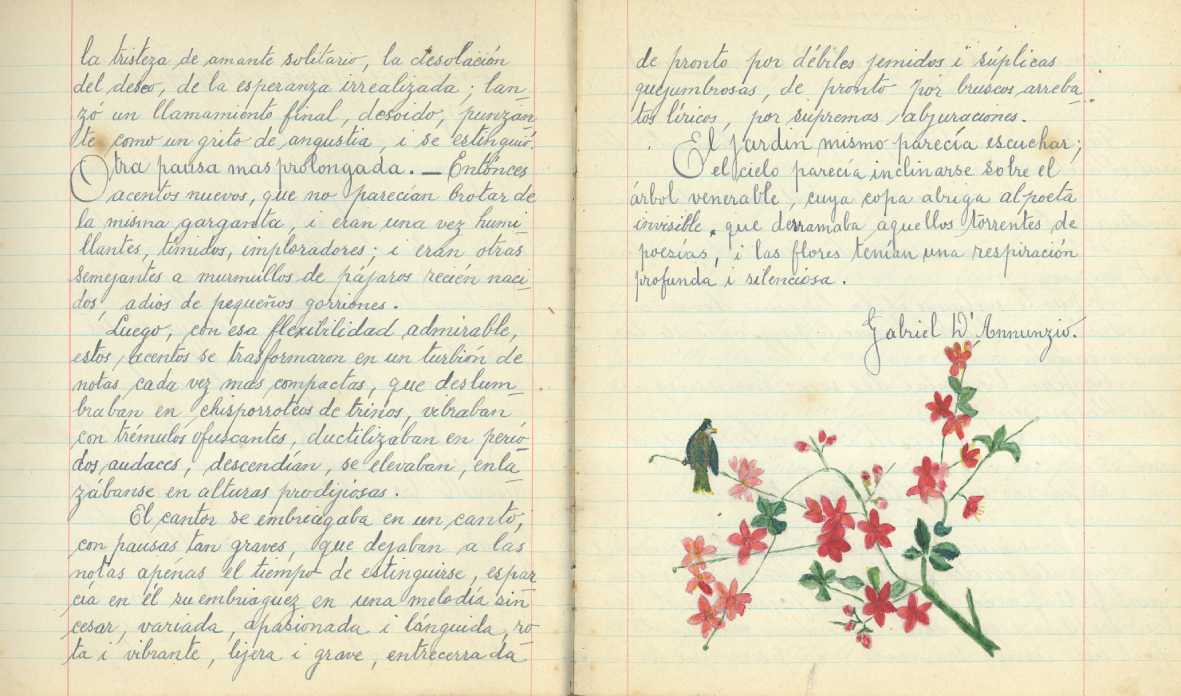 la tristeza de amante solitario, la desolación
del deseo, de la esperanza irrealizada; lan-
zó un llamamiento final, desoido, punzan-
te como un grito de angustia, i se estinguió.
Otra pausa mas prolongada. — Entónces
acentos nuevos, que no parecían brotar de
la misma garganta, i eran una vez humi-
llantes, tímidos, imploradores; i eran otras
semejantes a murmullos de pájaros recién naci-
dos, adios de pequeños gorriones.
Luego, con esa flexibilidad admirable,
estos acentos se trasformaron en un turbión de
notas cada vez mas compactas, que deslum-
braban en chisporroteos de trinos, vibraban
con trémulos ofuscantes, ductilizaban en perío-
dos audaces, descendían, se elevaban, enla-
zábanse en alturas prodijiosas.
El cantor se embriagaba en un canto,
con pausas tan graves, que dejaban a las
notas apénas el tiempo de estinguirse, espar-
cía en él su embriaguéz en una melodía sin
cesar, variada, apasionada i lánguida, ro-
ta i vibrante, lijera i grave, entrecerrada
de pronto por débiles jemidos i súplicas
quejumbrosas, de pronto por bruscos arreba-
tos líricos, por supremas abjuraciones.
El jardin mismo parecía escuchar;
el cielo parecía inclinarse sobre el
árbol venerable, cuya copa abriga al poeta
invisible, que derramaba aquellos torrentes de
poesías, i las flores tenían una respiración
profunda i silenciosa.
Gabriel D'Annunzio.